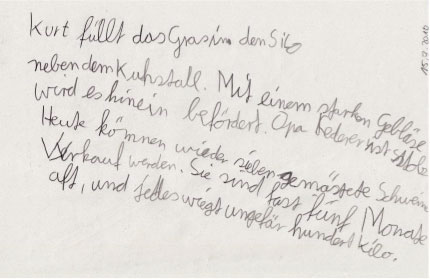 Kurt füllt das Gras in den Silo
neben dem Kuhstall. Mit einem starken Gebläse
wird es hinein befördert. Opa Federer ist stolz
Heute können wieder sieben gemästete Schwein
Verkauf werden. Sie sind fast fünf Monate
alt, und jedes wiegt ungefär hundert kilo.
15.9.2010